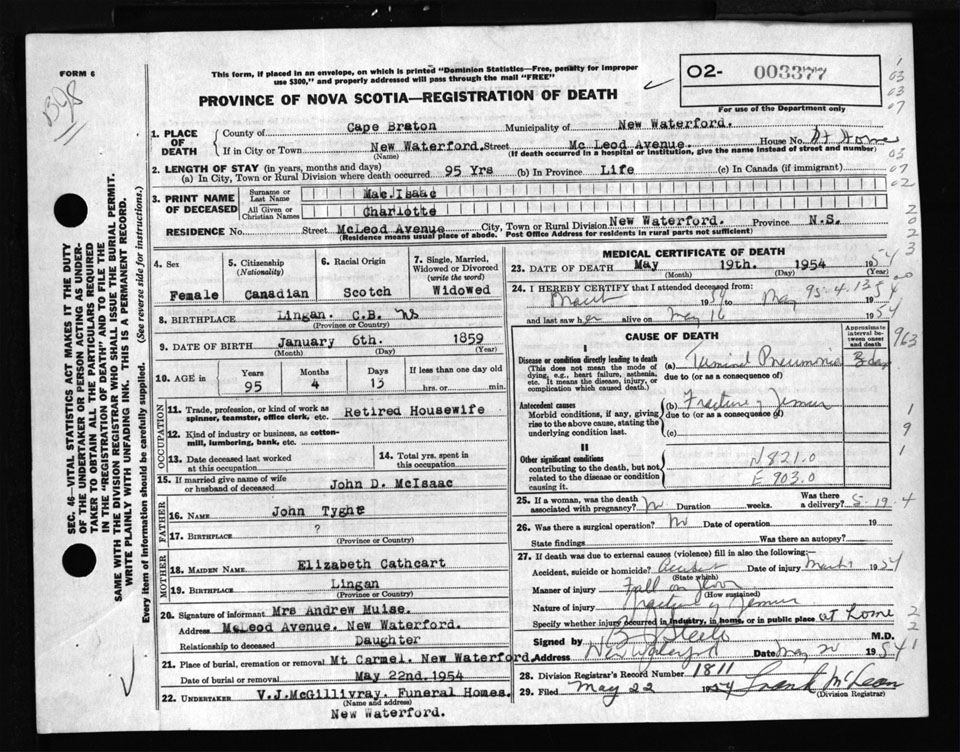 FORM 6
B98
This form, if placed in an envelope, on which is printed "Dominion Statistics—Free, penalty for improper
use $300," and properly addressed will pass through the mail "FREE"
O2- 003377
For use of the Department only
PROVINCE OF NOVA SCOTIA—REGISTRATION OF DEATH
1. PLACE OF DEATH
County of Cape Braton Municipality of New Waterford.
If in City or Town New Waterford. Street Mc Leod Avenue. House No. At Home
(Name) (If death occurred in a hospital or institution, give the name instead of street and number)
2. LENGTH OF STAY (in years, months and days)
(a) In City, Town or Rural Division where death occurred 95 Yrs (b) In Province Life (c) In Canada (if immigrant)
3. PRINT NAME OF DECEASED
Surname or Last Name Mac.Isaac
All Given or Christian Names Charlotte
RESIDENCE No. Street McLeod Avenue City, Town or Rural Division New Waterford. Province N.S.
(Residence means usual place of abode. Post Office Address for residents in rural parts not sufficient)
4. Sex Female
5. Citizenship (Nationality) Canadian
6. Racial Origin Scotch
7. Single, Married, Widowed or Divorced (write the word) Widowed
8. BIRTHPLACE Lingan. C.B. NS
(Province or Country)
9. DATE OF BIRTH January 6th. 1859
(Month) (Day) (Year)
10. AGE in Years 95 Months 4 Days 13 If less than one day old hrs. or min.
OCCUPATION
11. Trade, profession, or kind of work as spinner, teamster, office clerk, etc. Retired Housewife
12. Kind of industry or business, as cotton-mill, lumbering, bank, etc.
13. Date deceased last worked at this occupation
14. Total yrs. spent in this occupation
15. If married give name of wife or husband of deceased John D. McIsaac
FATHER
16. NAME John Tyghe
17. BIRTHPLACE ?
(Province or Country)
MOTHER
18. MAIDEN NAME Elizabeth Cathcart
19. BIRTHPLACE Lingan
(Province or Country)
20. Signature of informant Mrs Andrew Muise.
Address McLeod Avenue. New Waterford.
Relationship to deceased Daughter
21. Place of burial, cremation or removal Mt Carmel. New Waterford.
Date of burial or removal May 22nd. 1954
22. UNDERTAKER V.J.McGillivray. Funeral Homes.
(Name and address)
New Waterford.
MEDICAL CERTIFICATE OF DEATH
23. DATE OF DEATH May 19th. 1954
(Month) (Day) (Year)
24. I HEREBY CERTIFY that I attended deceased from
March 1954 May 1954
and last saw her alive on May 16 1954
95.4.13
CAUSE OF DEATH
Approximate interval between onset and death
I
Disease or condition directly leading to death
(This does not mean the mode of dying, e.g., heart failure, asthenia, etc. It means the disease, injury, or complication which caused death.)
(a) Terminal Pneumonia 3 days
due to (or as a consequence of)
Antecedent causes
Morbid conditions, if any, giving rise to the above cause, stating the underlying condition last.
(b) Fracture of Femur
due to (or as a consequence of)
(c)
II
Other significant conditions
contributing to the death, but not related to the disease or condition causing it.
N821.0
E 903.0
25. If a woman, was the death associated with pregnancy? No Duration weeks. Was there a delivery?
5-19-4
26. Was there a surgical operation? No Date of operation 19
State findings Was there an autopsy?
27. If death was due to external causes (violence) fill in also the following:—
Accident, suicide or homicide? Accident Date of injury March 1954
(State which)
Manner of injury Fall on floor
(How sustained)
Nature of injury Fracture of Femur
Specify whether injury occurred in industry, in home, or in public place at home
Signed by M.D.
Address New Waterford Date May 20 1954
28. Division Registrar's Record Number 1811
29. Filed May 22 1954 Frank McLean
(Division Registrar)
SEC. 46—VITAL STATISTICS ACT MAKES IT THE DUTY
OF THE UNDERTAKER OR PERSON ACTING AS UNDER-
TAKER TO OBTAIN ALL THE PARTICULARS REQUIRED
IN THE "REGISTRATION OF DEATH" AND TO FILE THE
SAME WITH THE DIVISION REGISTRAR WHO SHALL ISSUE THE BURIAL PERMIT.
WRITE PLAINLY WITH UNFADING INK. THIS IS A PERMANENT RECORD.
Every item of information should be carefully supplied. (See reverse side for instructions.)
1
03
03
07
03
07
02
963